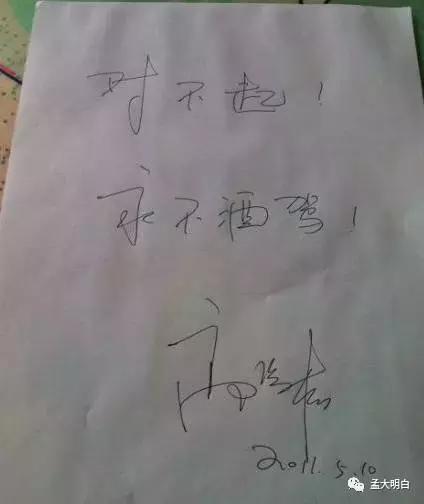 对不起！
永不酒驾！
高
2011.5.10
孟大明白